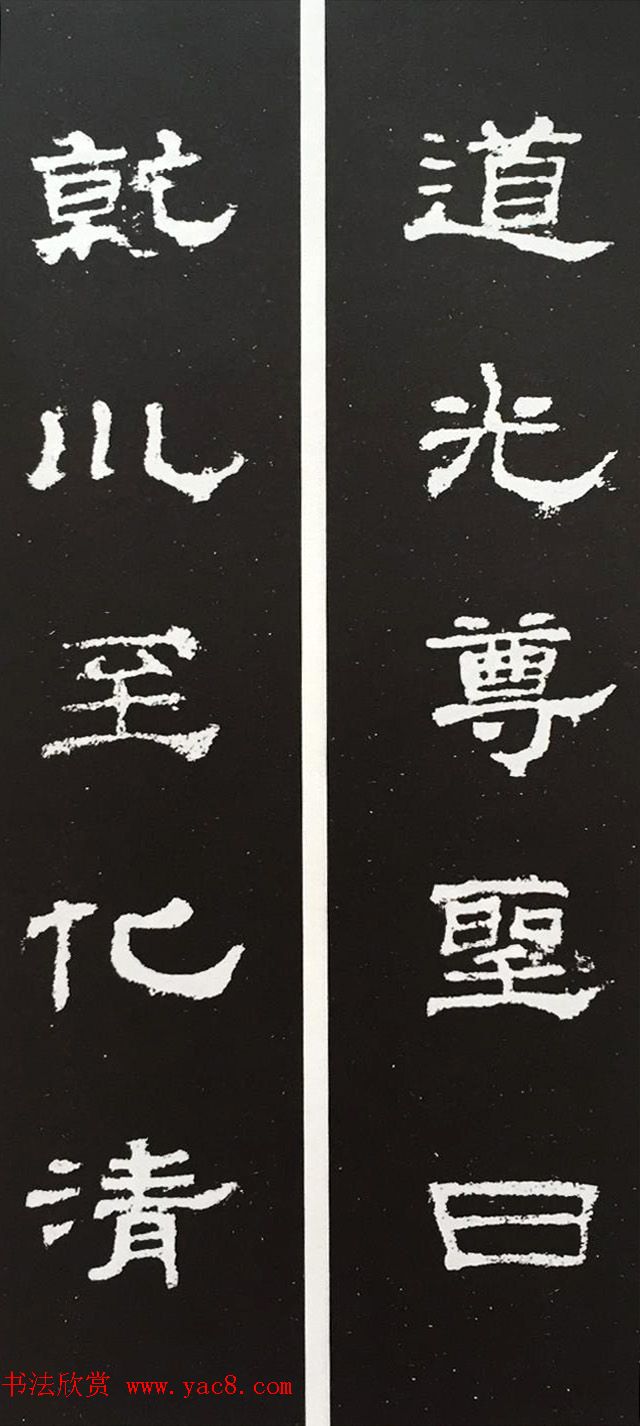 道光尊聖日
乾川至化清
书法欣赏 www.yac8.com